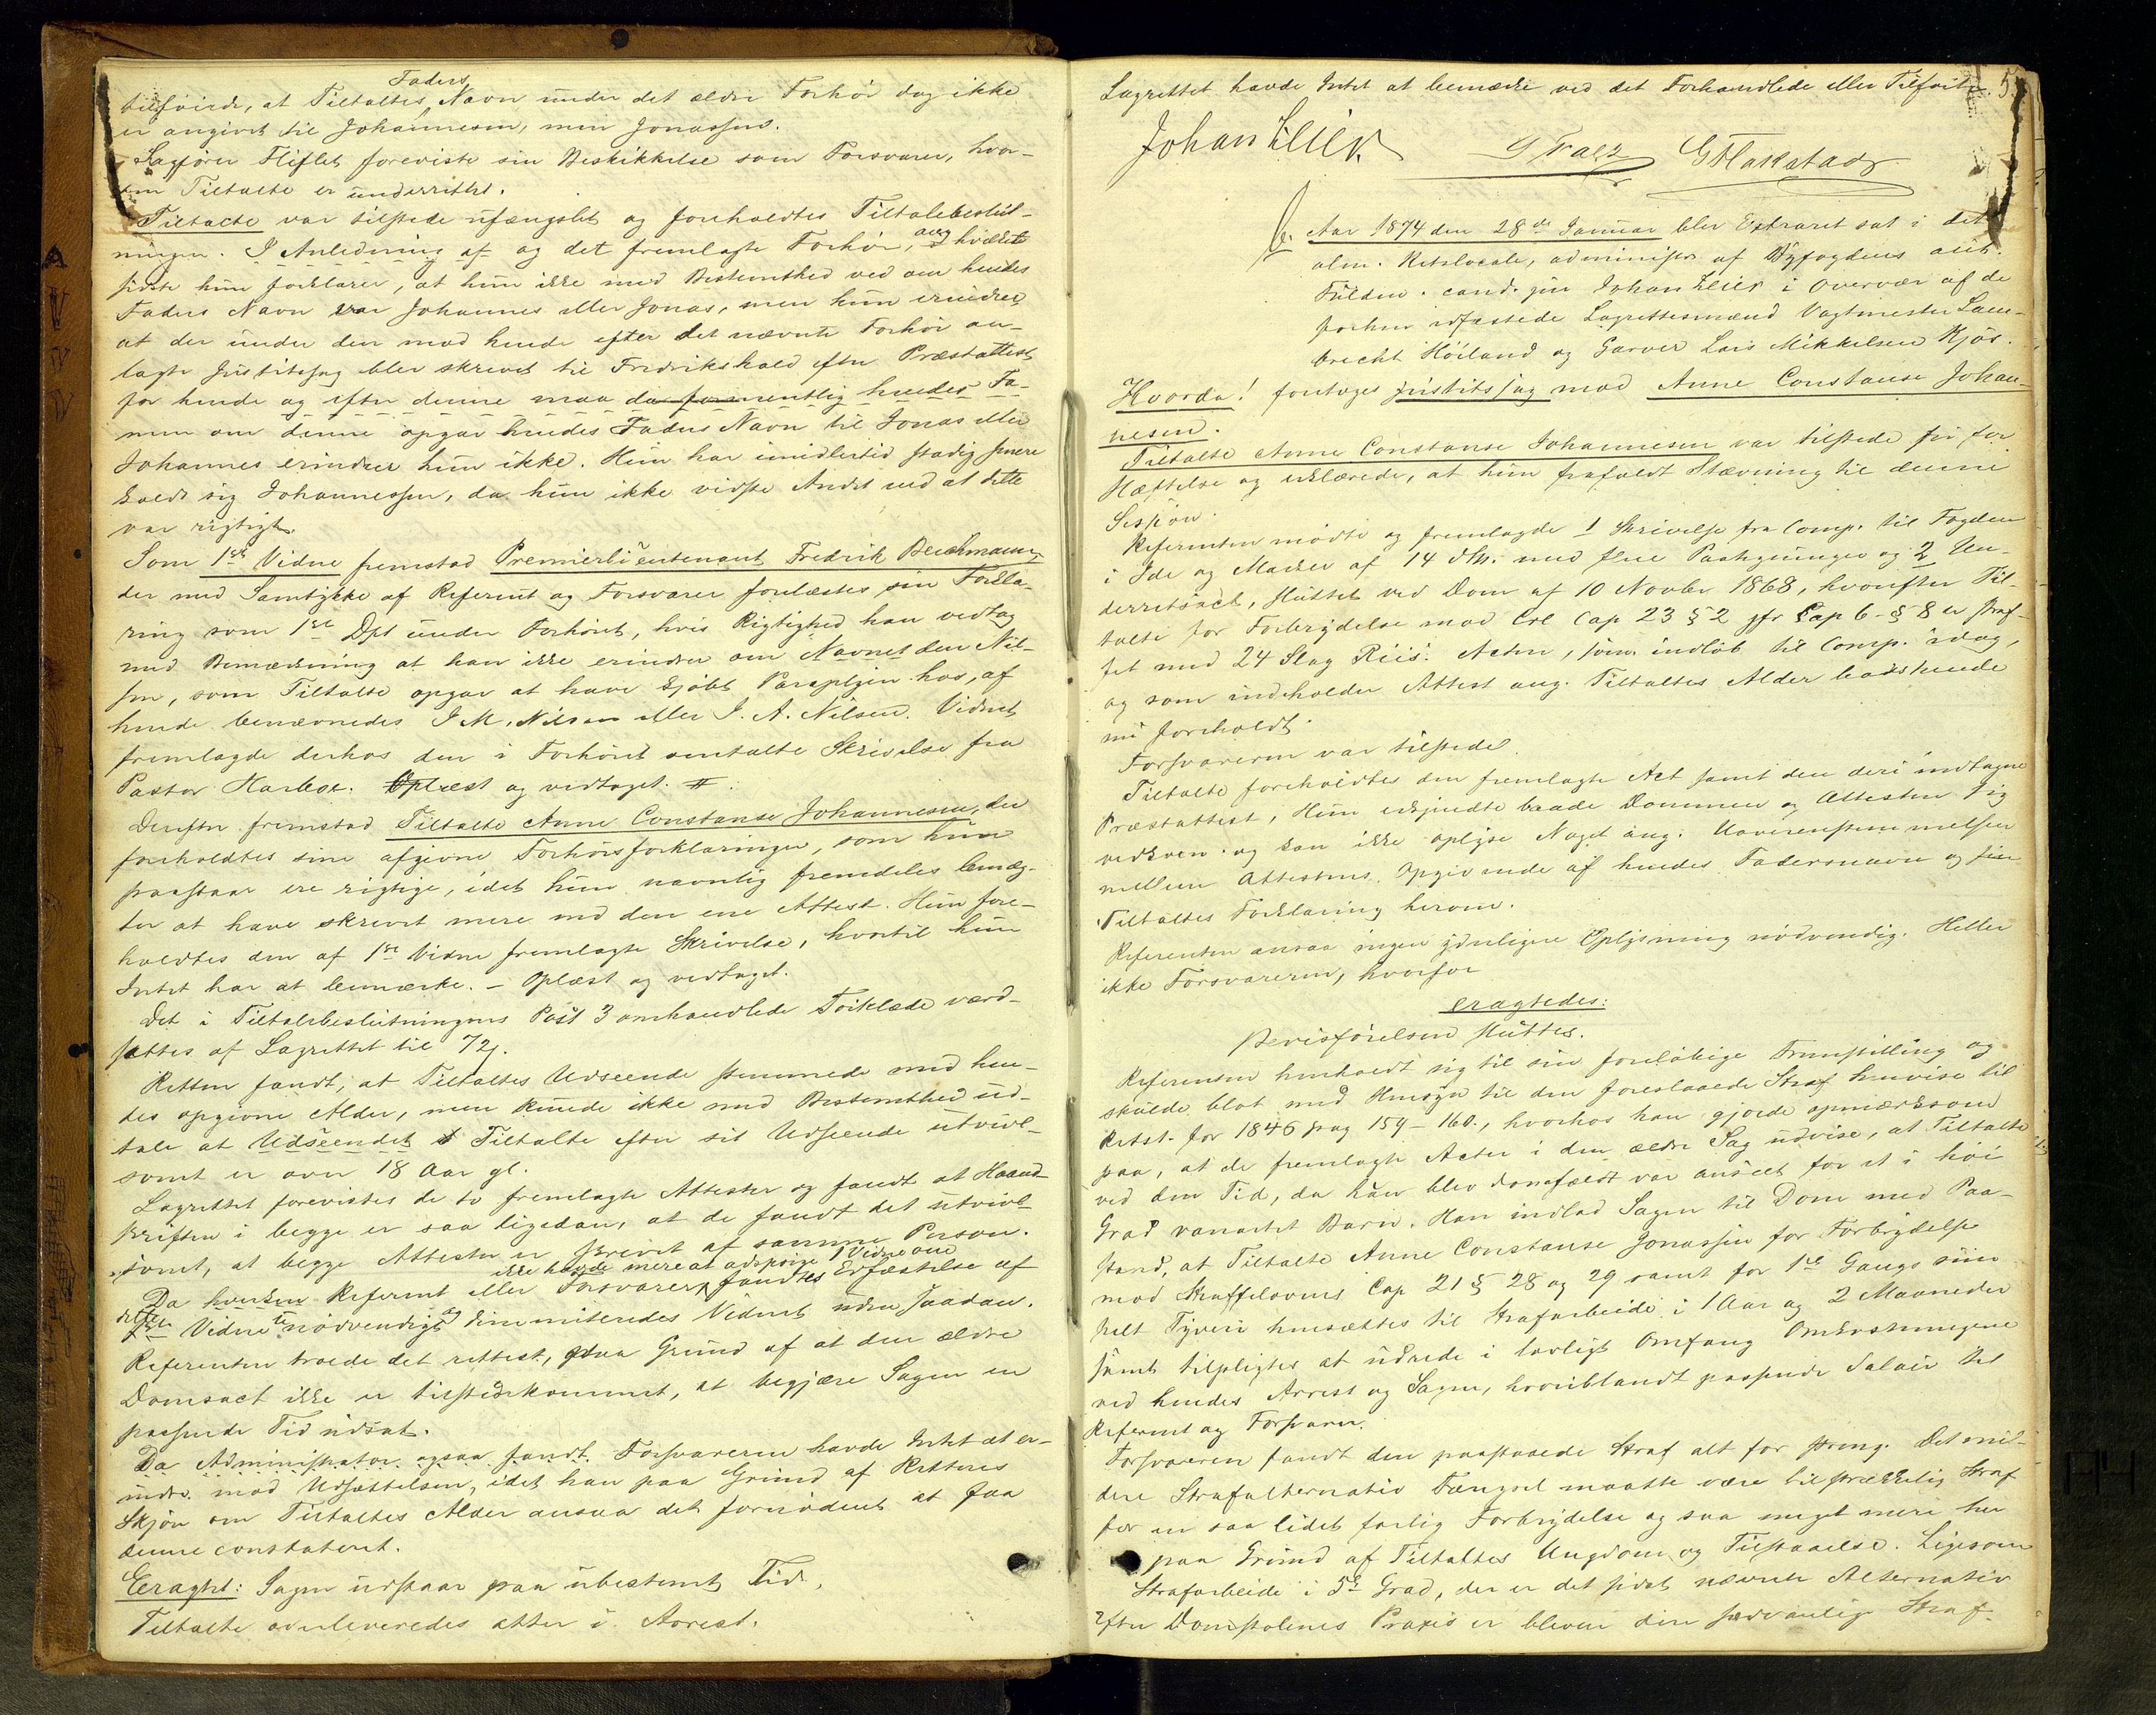 Faders
tilføiede, at Tiltaltes Navn under det ældre Forhør dog ikke
er angivet til Johannesen, men Jonassen.
Sagfører Fliflet foreviste sin Beskikkelse som Forsvarer, hvor-
om Tiltalte er underrettet.
Tiltalte var tilstede ufængslet og foreholdtes Tiltalebeslut-
ningen. I Anledning af og det fremlagte Forhør, ang hvilket
sidste hun forklarer, at hun ikke med Bestemthed ved om hendes
Faders Navn var Johannes eller Jonas, men hun erindrer
at der under den mod hende efter det nævnte Forhør an-
lagte Justitssag blev skrevet til Fredrikshald efter Præstattest
for hende og efter denne maa da formentlig hendes Fa-
men om denne opgav hendes Faders Navn til Jonas eller
Johannes erindrer hun ikke. Hun har imidlertid stadig senere
kaldt sig Johannessen, da hun ikke vidste Andet end at dette
var rigtigt.
Som 1ste Vidne fremstod Premierlieutenant Fredrik Beichmann,
der med Samtykke af Referent og Forsvarer forelæstes sin Forkla-
ring som 1ste Dpt under Forhøret, hvis Rigtighed han vedtog
med Bemærkning at han ikke erindrer om Navnet den Nil-
sen, som Tiltalte opgav at have kjøbt Paraplyen hos, af
hende benævnedes I. M. Nilsen eller I. A. Nilsen. Vidnet
fremlagde derhos den i Forhøret omtalte Skrivelse fra
Pastor Harboe. Oplæst og vedtaget.
Derefter fremstod Tiltalte Anne Constanse Johannesen, der
foreholdtes sine afgivne Forhørsforklaringer, som hun
paastaar ere rigtige, idet hun navnlig fremdeles benæg-
ter at have skrevet mere end den ene Attest. Hun fore-
holdtes den af 1ste Vidne fremlagte Skrivelse, hvortil hun
Intet har at bemærke. – Oplæst og vedtaget.
Det i Tiltalebeslutningens Post 3 omhandlede Tørklæde værd-
sattes af Lagrettet til 72ß.
Retten fandt, at Tiltaltes Udseende stemmede med hen-
des opgivne Alder, men kunde ikke med Bestemthed ud-
tale at Udseendet Tiltalte efter sit Udseende utvivl-
somt er over 18 Aar gl.
Lagrettet forevistes de to fremlagte Attester og fandt at Haand-
skriften i begge er saa ligedan, at de fandt det utvivl-
somt, at begge Attester er skrevet af samme Person.
ikke havde mere at adspørge 1 Vidne om
Da hverken Referent eller Forsvarer fandtes Edfæstelse af
dette Vidne nødvendigt dimmiteredes Vidnet uden saadan.
Referenten troede det rettest, paa Grund af at den ældre
Domsact ikke er tilstedekommet, at begjære Sagen en
passende Tid udsat.
Da Administrator ogsaa fandt. Forsvareren havde Intet at er-
indre mod Udsættelsen, idet han paa Grund af Rettens
Skjøn om Tiltaltes Alder ansaa det fornødent at faa
denne constateret.
Eragtet: Sagen udstaar paa ubestemt Tid,
Tiltalte overleveredes atter i Arrest.
Lagrettet havde Intet at bemærke ved det Forhandlede eller Tilførte. 5
Johan Lilier G Flakstad
Aar 1874 den 28de Januar blev Extraret sat i det
alm. Retslocale, administreret af Byfogdens aut.
Fuldm. cand. jur Johan Lilier i Overvær af de
forhen edfæstede Lagrettesmænd Vagtmester Lam-
brecht Høiland og Garver Lars Mikkelsen Kjøs.
Hvorda! foretoges Justitssag mod Anne Constanse Johan-
nesen.
Tiltalte Anne Constanse Johannesen var tilstede fri for
Hæftelse og erklærede, at hun frafaldt Stævning til denne
Session.
Referenten mødte og fremlagde 1 Skrivelse fra Comp. til Fogden
i Ide og Marker af 14 ds. med flere Paategninger og 2 Un-
derretsact, sluttet ved Dom af 10 Novbr 1868, hvorefter Til-
talte for Forbrydelse mod Crl Cap 23 § 2 jfr Cap 6 § 8 er straf-
fet med 24 Slag Riis. Acten, som indløb til Comp. idag,
og som indeholder Attest ang. Tiltaltes Alder
nu foreholdt.
Forsvareren var tilstede.
Tiltalte foreholdtes den fremlagte Act samt den deri indtagne
Præstattest, Hun erkjendte baade Dommen og Attesten sig
vedkom. og kan ikke oplyse Noget ang. Uoverensstemmelsen
mellem Attestens Opgivende af hendes Fadersnavn og sin
Tiltaltes Forklaring herom.
Referenten ansaa ingen yderligere Oplysning nødvendig. Heller
ikke Forsvareren, hvorfor
eragtedes:
Bevisførelsen sluttes.
Referenten henholdt sig til sin foreløbige Fremstilling og
skulde blot med Hensyn til den foreslaaede Straf henvise til
Retst. for 1846 pag 159–160., hvorhos han gjorde opmærksom
paa, at de fremlagte Acter i den ældre Sag udvise, at Tiltalte
ved den Tid, da hun blev domfældt var anseet for et i høi
Grad vanartet Barn. Han indlod Sagen til Dom med Paa-
stand, at Tiltalte Anne Constanse Jonassen for Forbrydelse
mod Straffelovens Cap 21 § 28 og 29 samt for 1ste Gangs sim-
pelt Tyveri hensættes til Strafarbeide i 1 Aar og 2 Maaneder
samt tilpligtes at udrede i lovligt Omfang Omkostningerne
ved hendes Arrest og Sagen, hvoriblandt passende Salair til
Referent og Forsvarer.
Forsvareren fandt den paastaaede Straf alt for streng. Det mil-
dere Strafalternativ Fængsel maatte være tilstrækkelig Straf
for en saa lidet farlig Forbrydelse og saa meget mere her
paa Grund af Tiltaltes Ungdom og Tilstaaelse. Ligesom
Strafarbeide i 5te Grad, der er det sidst nævnte Alternativ
efter Domstolenes Praxis er bleven den sædvanlige Straf-